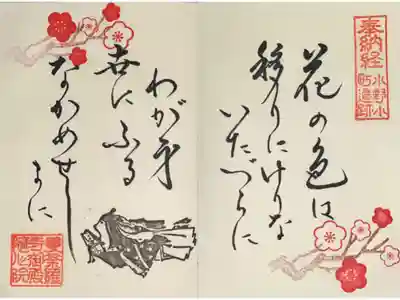 奉納経
小野小
町遺跡
花の色は
移りにけりな
いたづらに
わが身
世にふる
なかめせし
まに